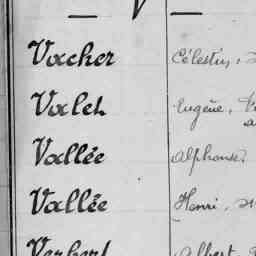 V
Vacher Célestin,
Valet Eugène,
Vallée Alphonse,
Vallée Henri,
Verbert Albert